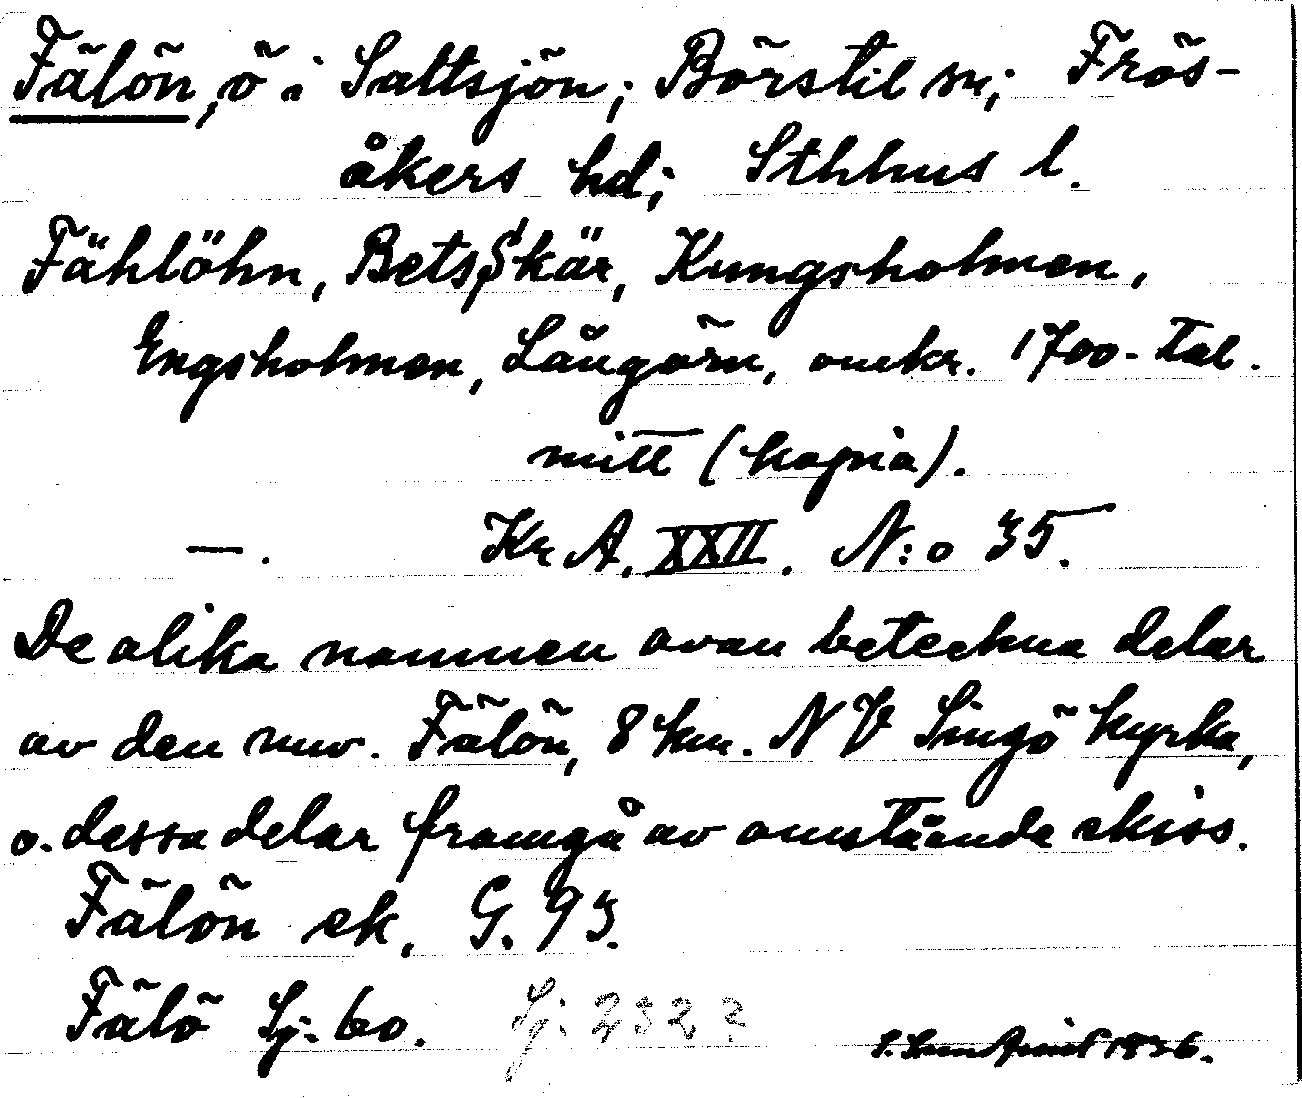 Fälön, ö i Saltsjön; Börstil sn; Frös-
åkers hd; Sthlms l.
Fählöhn, Betsskär, Kungsholmen,
Engsholmen, Långörn, omkr. 1700-tal.
mitt (kopia).
—. Kr A. XXII. N:o 35.
De olika namnen ovan beteckna delar
av den nuv. Fälön, 8 km. NV Singö kyrka,
o. dessa delar framgå av omstående skiss.
Fälön ek. G. 93.
Fälö Sj: 60. Sj: 232?